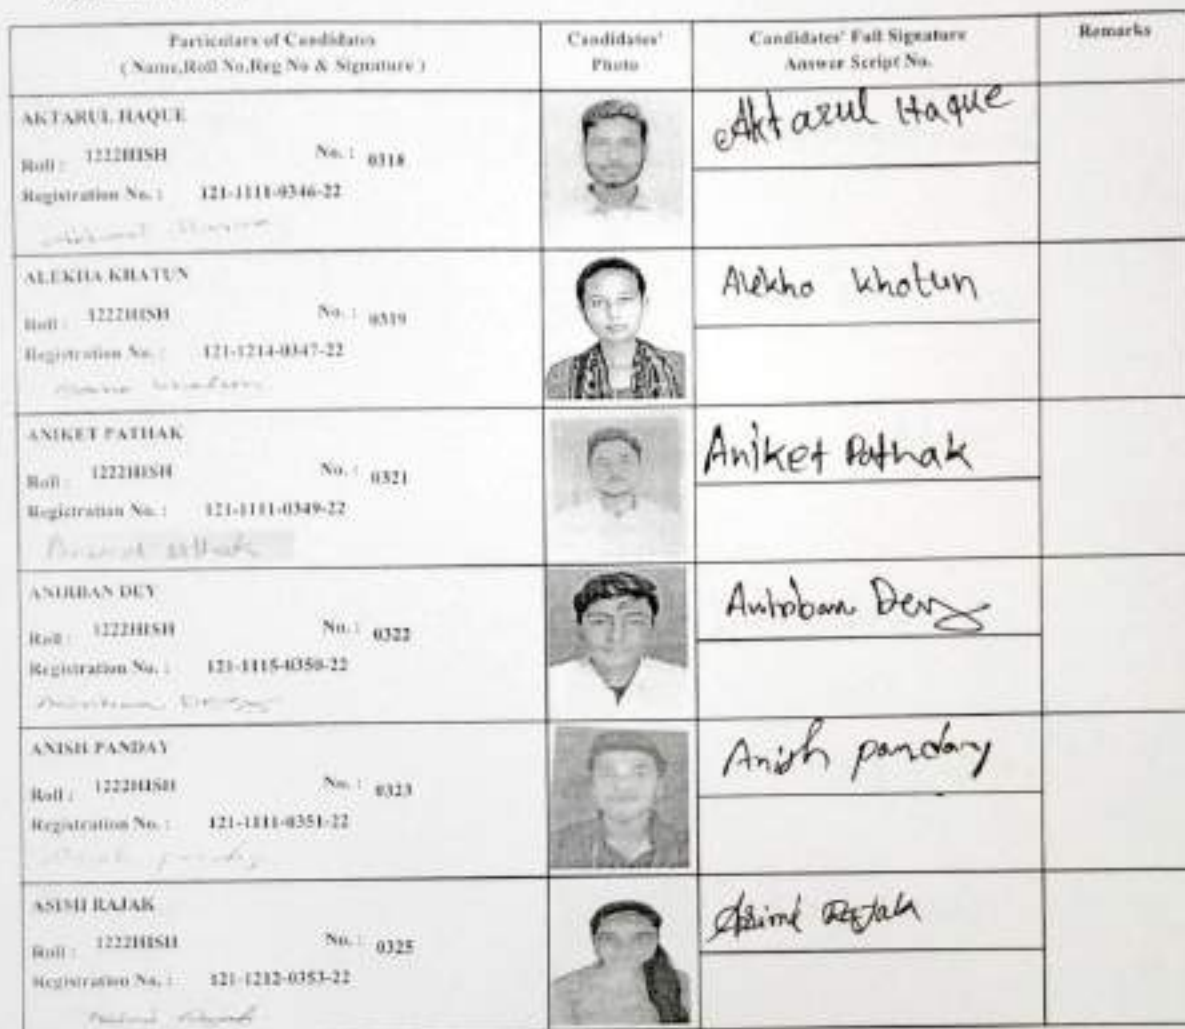 Particulars of Candidates
( Name,Roll No,Reg No & Signature )
Candidates'
Photo
Candidates' Full Signature
Answer Script No.
Remarks
AKTARUL HAQUE
Roll : 1222HISH No. : 0318
Registration No. : 121-1111-0346-22
Aktarul Haque
ALEKHA KHATUN
Roll : 1222HISH No. : 0319
Registration No. : 121-1214-0347-22
Alekha Khatun
ANIKET PATHAK
Roll : 1222HISH No. : 0321
Registration No. : 121-1111-0349-22
Aniket Pathak
ANIRBAN DEY
Roll : 1222HISH No. : 0322
Registration No. : 121-1115-0350-22
Anirban Dey
ANISH PANDAY
Roll : 1222HISH No. : 0323
Registration No. : 121-1111-0351-22
Anish panday
ASIMI RAJAK
Roll : 1222HISH No. : 0325
Registration No. : 121-1212-0353-22
Asimi Rajak